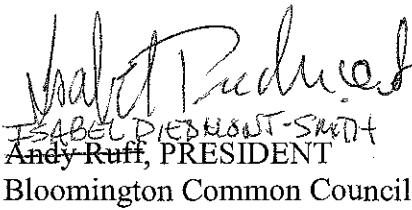 Isabel Piedmont
ISABEL PIEDMONT-SMITH
Andy Ruff, PRESIDENT
Bloomington Common Council